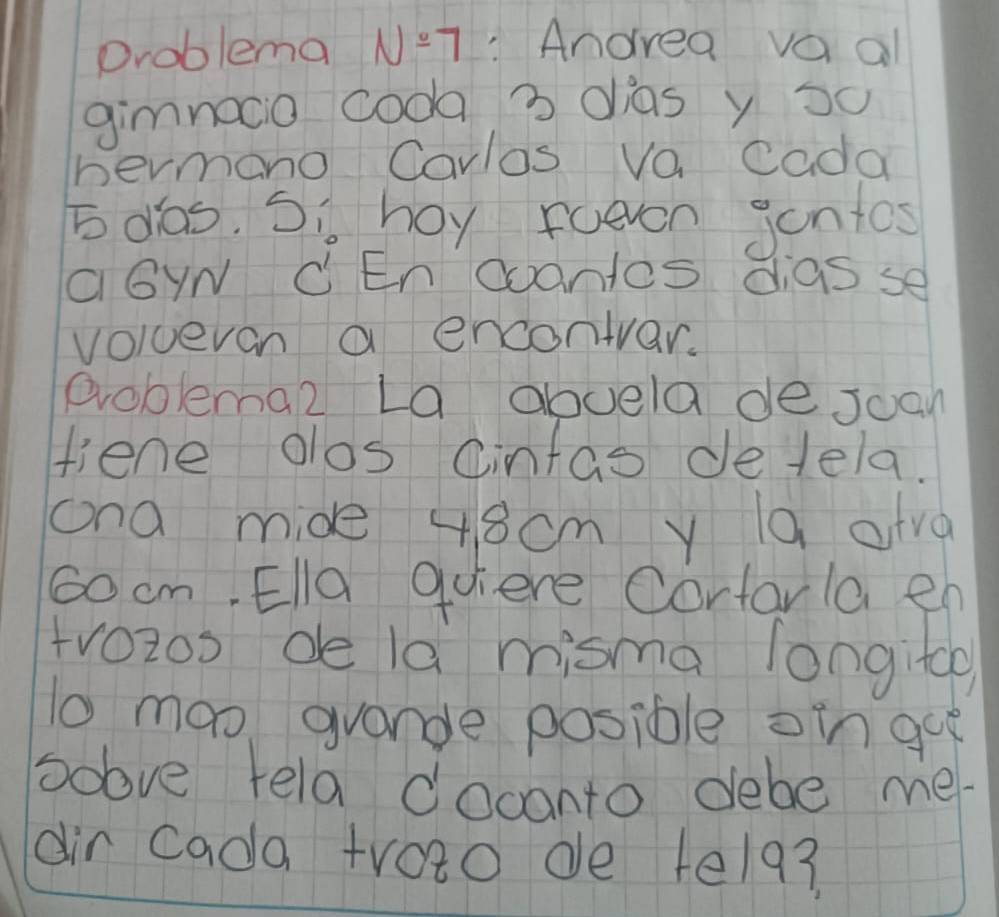 Problema N°7: Andrea va al
gimnacio coda 3 dias y su
hermano Carlos va cada
5 dias. Si hoy fueron juntos
a GYN ¿ En cuantos dias se
volveran a encontrar.
Problema2 La abuela de Juan
tiene dos cintas de tela.
una mide 48cm y la otra
60cm. Ella quiere Cortarla en
trozos de la misma longitud,
lo mas grande posible sin que
sobre tela ¿Cuanto debe me-
dir cada trozo de tela?